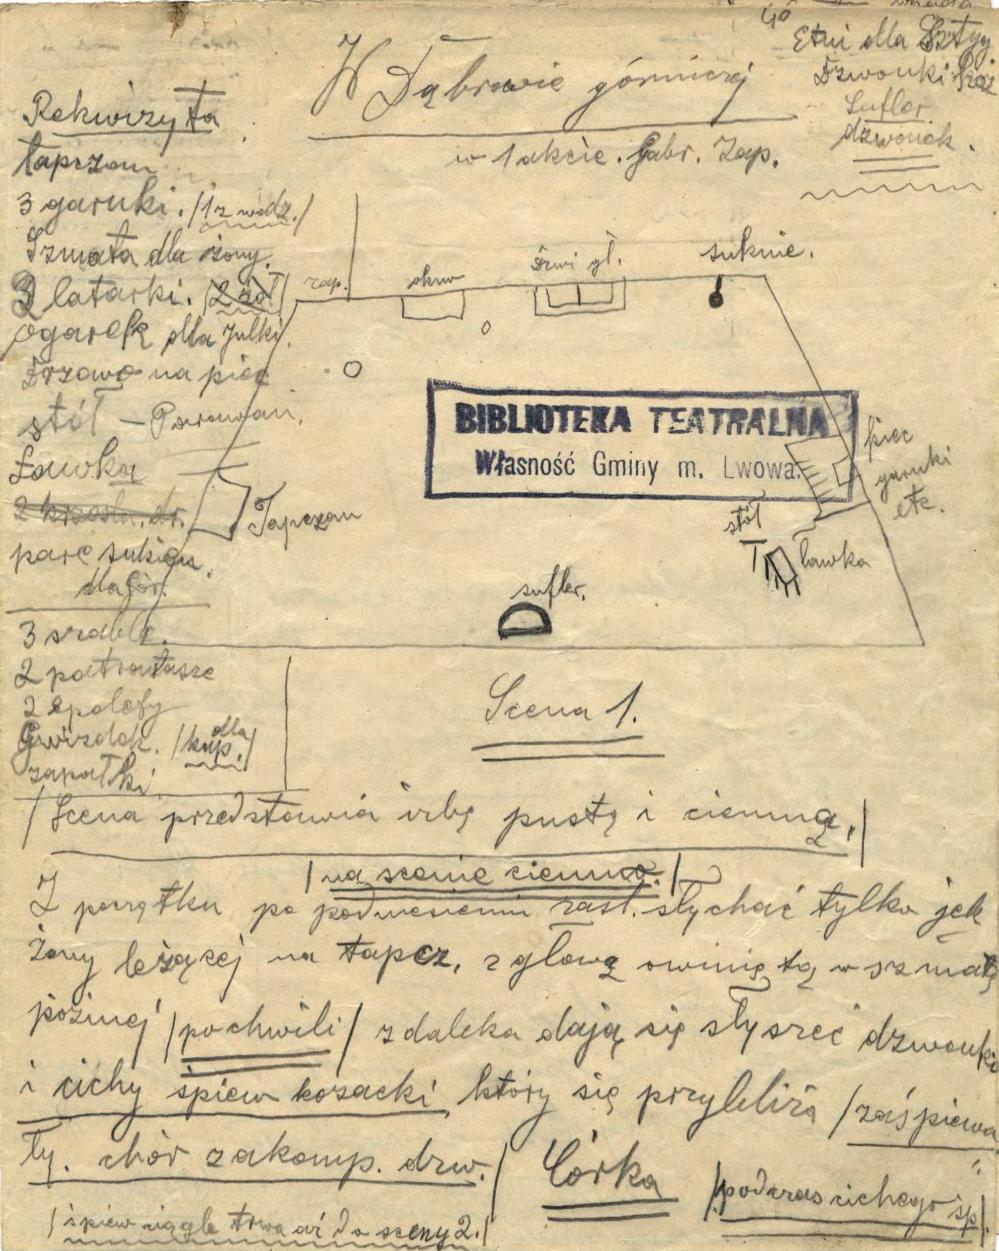 Etui dla
W Dąbrowie górniczej
dzwonki
Sufler
dzwonek.
w 1 akcie. Gabr. Zap.
Rekwizyta
tapczan
3 garnki. /1 z wodą./
Szmata dla żony.
3 latarki.
ogarek dla Julki.
Drzewo na piec
stół —
Ławka
2 krzesła. dr.
parę sukien.
dla Gór.
3 szable.
2 patrontasze
2 epolety
Gwizdek. /dla kap./
zapałki.
zap.
okno
Drzwi gł.
suknie.
BIBLIOTEKA TEATRALNA
Własność Gminy m. Lwowa.
piec
garnki
etc.
Tapczan
stół
ławka
sufler.
Scena 1.
/Scena przedstawia izbę pustą i ciemną./
/na scenie ciemno./
Z początku po podniesieniu zasł. słychać tylko jęk
żony leżącej na tapcz. z głową owiniętą w szmatę
poźniej /po chwili/ zdaleka dają się słyszeć dzwonki
i cichy śpiew kozacki, który się przybliża /zaśpiewa
ty. chór zakomp. dzw./ Córka /podczas cichego śp./
/śpiew ciągle trwa aż do sceny 2./